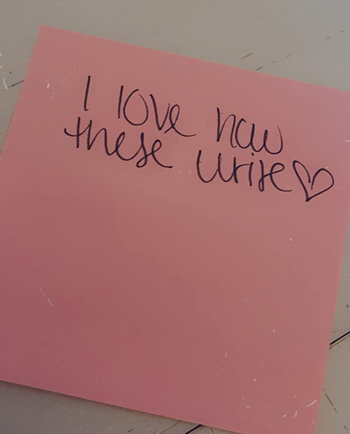 I love how
these write♡